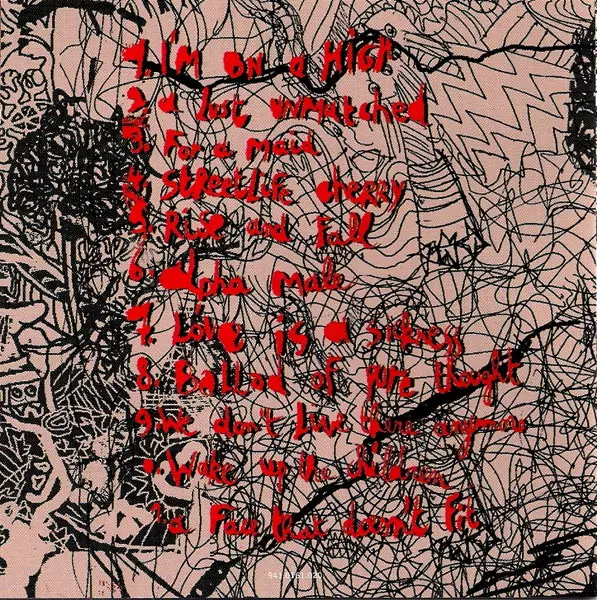 1. I'M ON a HIGH
2. a lust UNMatched
3. For a maid
4. StReetLiFe cherry
5. Rise and Fall
6. alpha male
7. Love is a sickness
8. Ballad of pure thought
9. We don't Live there anymore
Wake up the children
a Face that doesn't Fit